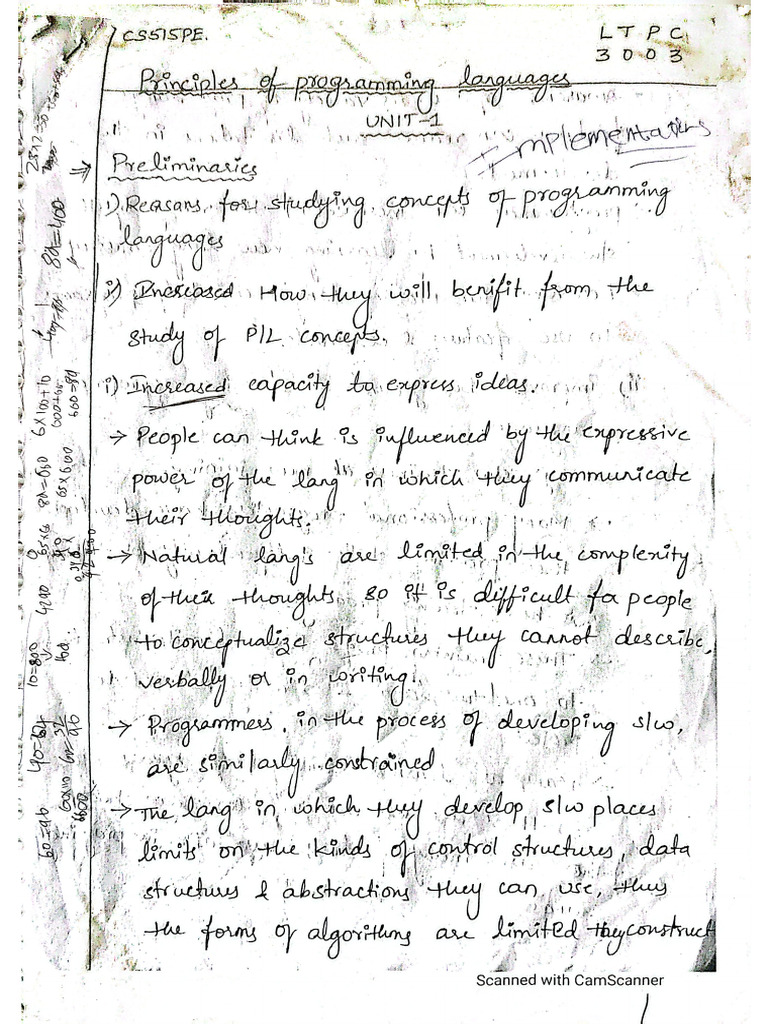 CS515PE.
L T P C
3 0 0 3
Principles of programming languages
UNIT-1
Implementations
⇒ Preliminaries
i) Reasons for studying concepts of programming
languages
ii) Increased How they will benifit from the
study of P/L concepts.
i) Increased capacity to express ideas.
→ People can think is influenced by the expressive
power of the lang in which they communicate
their thoughts.
→ Natural lang's are limited in the complexity
of their thoughts so it is difficult for people
to conceptualize structures they cannot describe,
verbally or in writing.
→ Programmers, in the process of developing s/w,
are similarly constrained
→ The lang in which they develop s/w places
limits on the kinds of control structures, data
structures & abstractions they can use, thus
the forms of algorithms are limited they construct
Scanned with CamScanner
1
80=400
6x100+10
600=80
65x600
4200
10=800
60=96
60x10